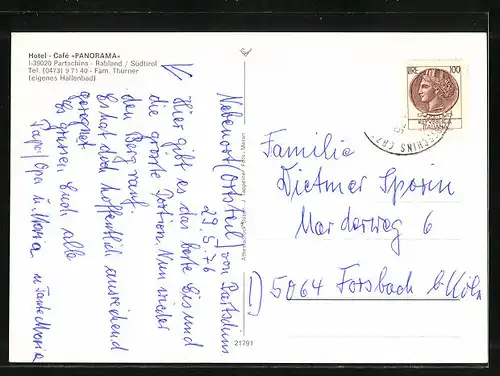 Hotel - Café »PANORAMA«
I-39020 Partschins - Rabland / Südtirol
Tel. (0473) 9 71 40 - Fam. Thurner
(eigenes Hallenbad)
Nebenort (Ortsteil) von Partschins
29.5.76
Hier gibt es das beste Eis und
die größte Portion. Nun wieder
den Berg rauf.
Es hat doch hoffentlich ausreichend
geregnet.
Es grüßen Euch alle
Papi/Opa u. Maria u Tante Maria
LIRE 100
ITALIANA
Familie
Dietmar Sporin
Marderweg 6
D 5064 Forsbach b/Köln
21791